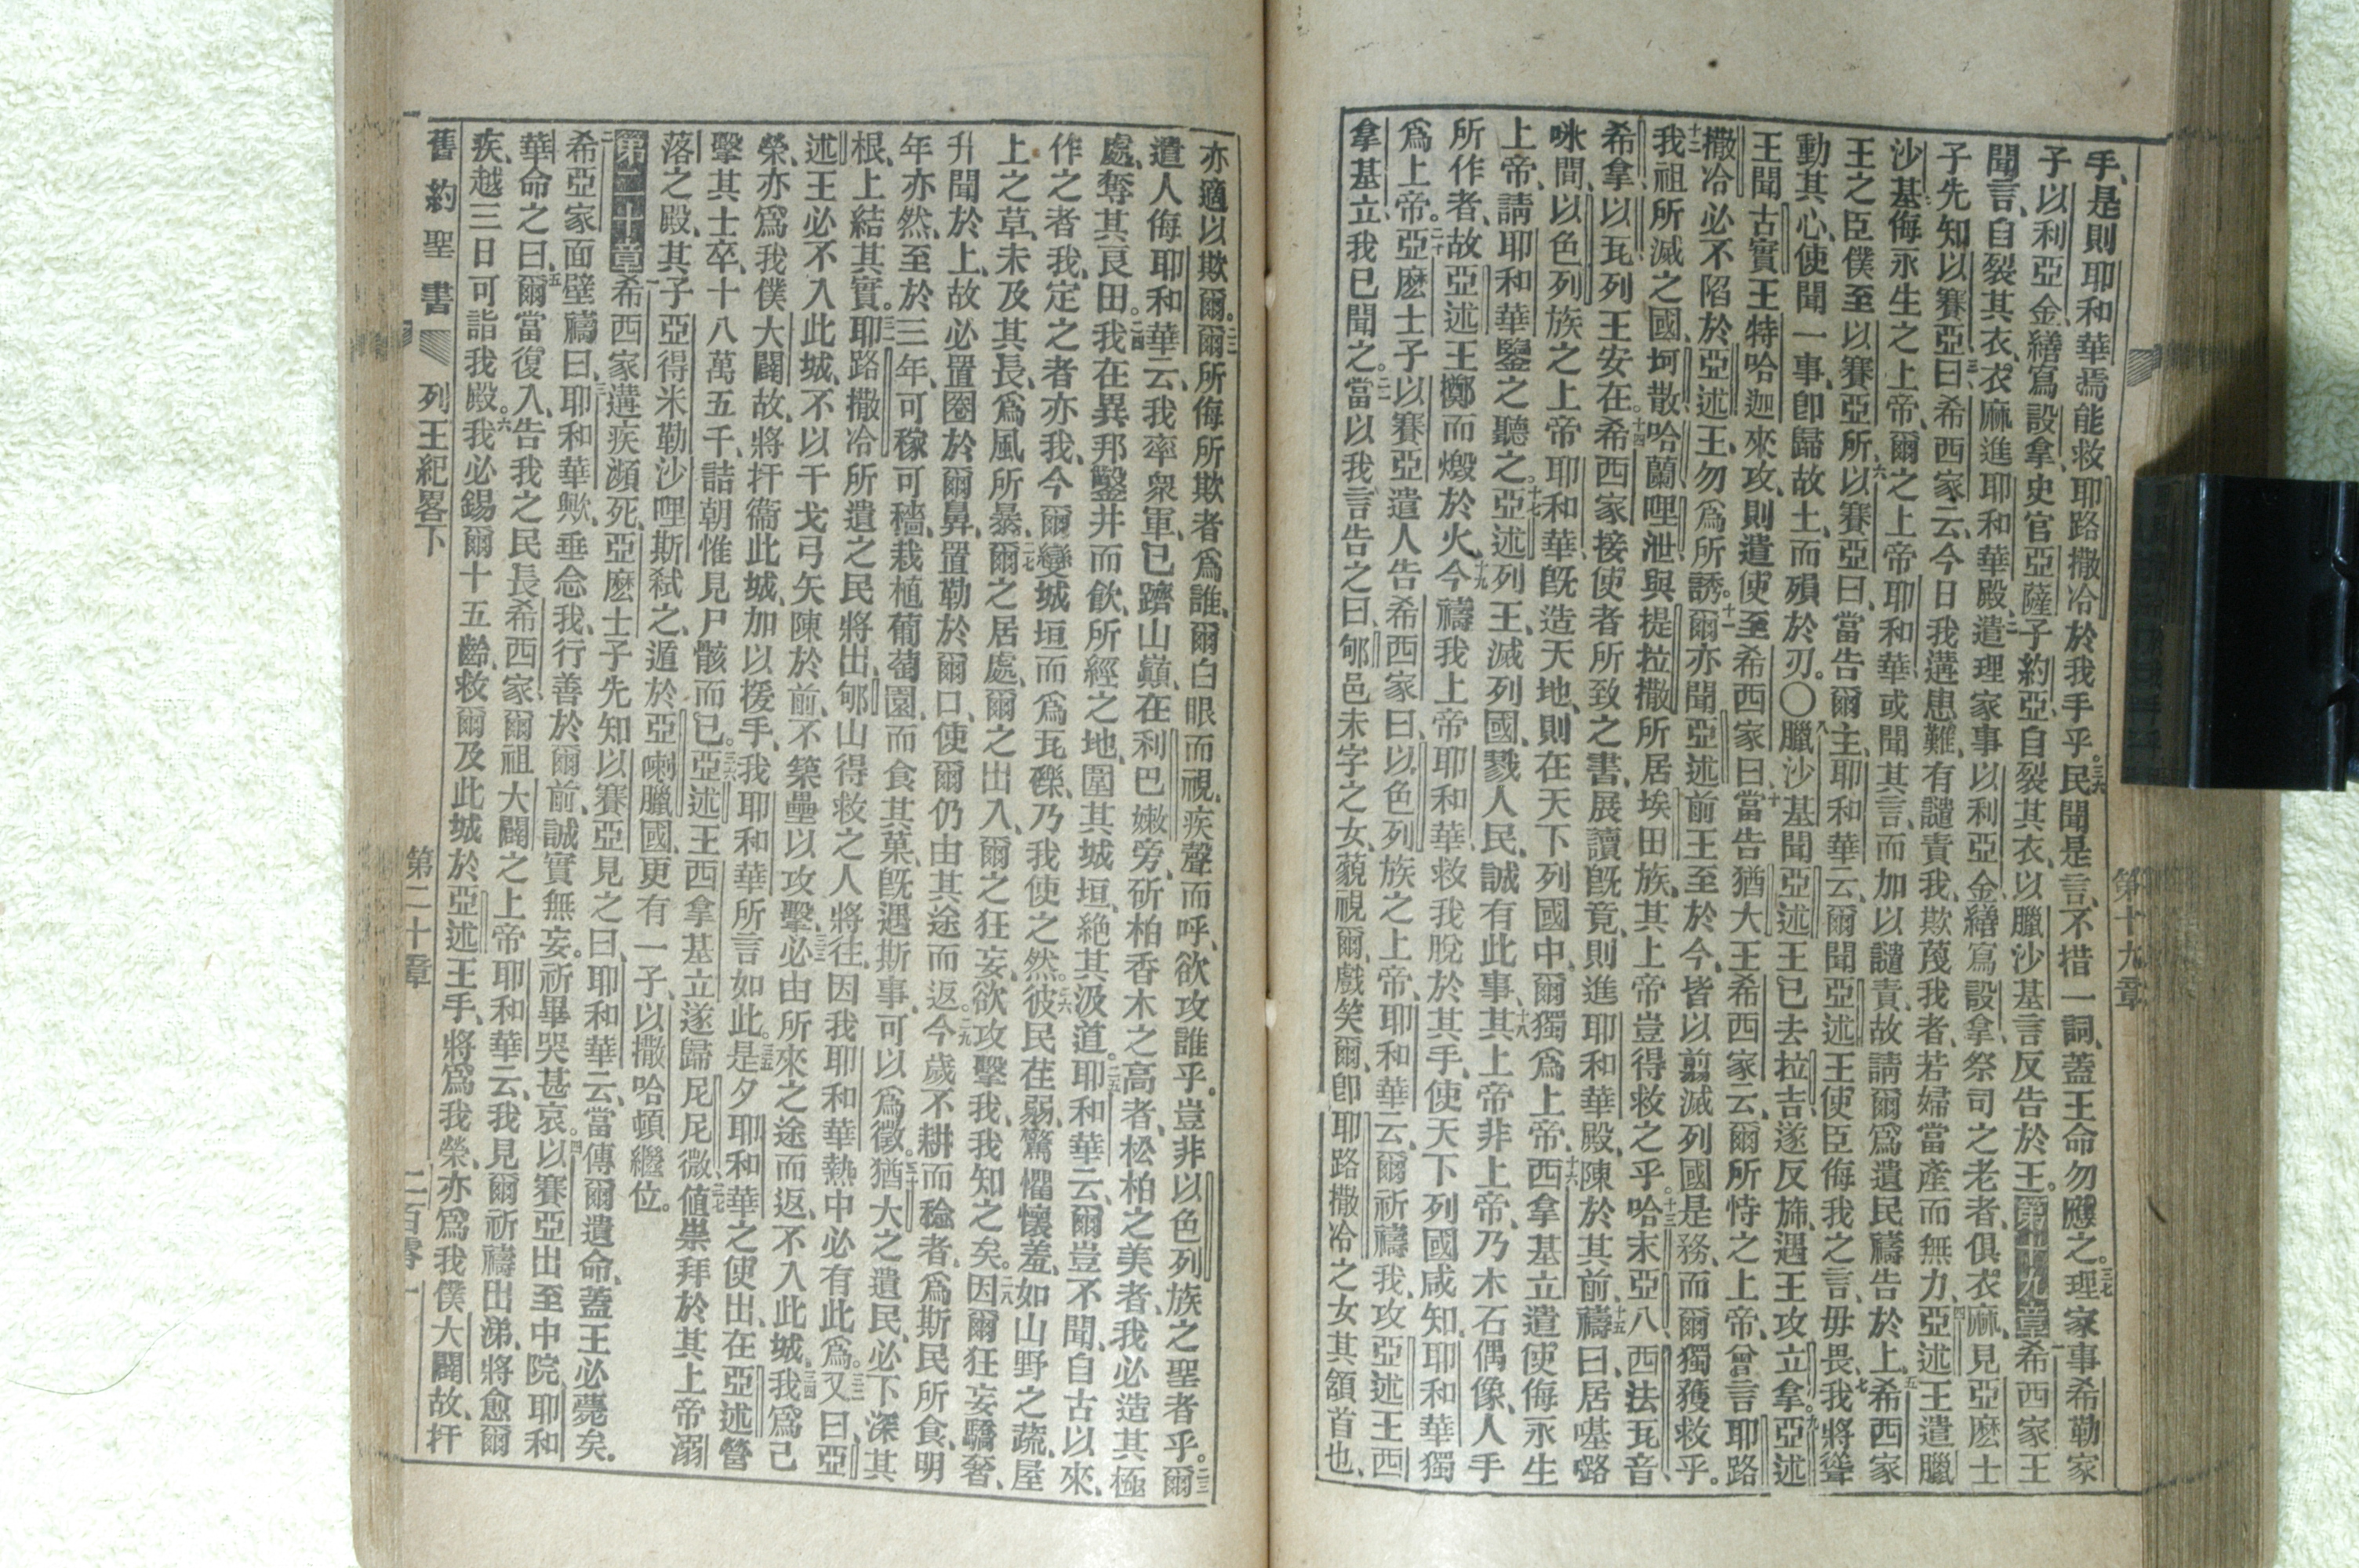 手、是則耶和華焉能救耶路撒冷於我手乎。三六民聞是言、不措一詞、蓋王命勿應之。三七理家事希勒家
子以利亞金、繕寫設拿、史官亞薩子約亞、自裂其衣、以臘沙基言反告於王。第十九章一希西家王
聞言、自裂其衣、衣麻進耶和華殿、二遣理家事以利亞金、繕寫設拿、祭司之老者、俱衣麻、見亞麼士
子先知以賽亞、三曰、希西家云、今日我遘患難、有譴責我、欺蔑我者、若婦當產而無力、四亞述王遣臘
沙基侮永生之上帝、爾之上帝耶和華或聞其言、而加以譴責、故請爾為遺民禱告於上、五希西家
王之臣僕至以賽亞所、六以賽亞曰、當告爾主、耶和華云、爾聞亞述王使臣侮我之言、毋畏、七我將聳
動其心、使聞一事、即歸故土、而殞於刃。〇八臘沙基聞亞述王已去拉吉、遂反旆、遇王攻立拿。九亞述
王聞古實王特哈迦來攻、則遣使至希西家曰、十當告猶大王希西家云、爾所恃之上帝、曾言耶路
撒冷必不陷於亞述王、勿為所誘。十一爾亦聞亞述前王至於今、皆以翦滅列國是務、而爾獨獲救乎。
十二我祖所滅之國、坷散、哈蘭、哩泄、與提拉撒所居埃田族、其上帝豈得救之乎。十三哈末、亞八、西法瓦音、
希拿、以瓦列王安在。十四希西家接使者所致之書、展讀既竟、則進耶和華殿、陳於其前、十五禱曰、居𠼻𡀔
㖠間、以色列族之上帝耶和華、既造天地、則在天下列國中、爾獨為上帝、十六西拿基立遣使侮永生
上帝、請耶和華鑒之聽之。十七亞述列王、滅列國、戮人民、誠有此事、十八其上帝非上帝、乃木石偶像、人手
所作者、故亞述王擲而燬於火、十九今禱我上帝耶和華、救我脫於其手、使天下列國咸知、耶和華獨
為上帝。二十亞麼士子以賽亞遣人告希西家曰、以色列族之上帝耶和華云、爾祈禱我、攻亞述王西
拿基立、我已聞之。二一當以我言告之曰、郇邑未字之女、藐視爾、戲笑爾、即耶路撒冷之女其頷首也、
亦適以欺爾。二二爾所侮所欺者為誰、爾白眼而視、疾聲而呼、欲攻誰乎。豈非以色列族之聖者乎。二三爾
遣人侮耶和華云、我率衆軍、已躋山巔、在利巴嫩旁、斫柏香木之高者、松柏之美者、我必造其極
處、奪其良田。二四我在異邦鑿井而飲、所經之地、圍其城垣、絕其汲道。二五耶和華云、爾豈不聞、自古以來、
作之者我、定之者亦我、今爾變城垣而為瓦礫、乃我使之然。二六彼民荏弱、驚懼懷羞、如山野之蔬、屋
上之草、未及其長、為風所暴、二七爾之居處、爾之出入、爾之狂妄、欲攻擊我、我知之矣。二八因爾狂妄驕奢、
升聞於上、故必置圈於爾鼻、置勒於爾口、使爾仍由其途而返。二九今歲不耕而稔者、為斯民所食、明
年亦然、至於三年、可稼可穡、栽植葡萄園、而食其菓、既遇斯事、可以為徵、三十猶大之遺民、必下深其
根、上結其實。三一耶路撒冷所遺之民將出、郇山得救之人將往、因我耶和華熱中必有此為。三二又曰、亞
述王必不入此城、不以干戈弓矢陳於前、不築壘以攻擊、三三必由所來之途而返、不入此城、三四我為己
榮、亦為我僕大闢故、將扞衞此城、加以援手、我耶和華所言如此。三五是夕耶和華之使出、在亞述營
擊其士卒、十八萬五千、詰朝惟見尸骸而已。三六亞述王西拿基立遂歸尼尼微、三七値祟拜於其上帝溺
落之殿、其子亞得米勒、沙哩斯弒之、遁於亞喇臘國、更有一子、以撒哈頓繼位。
第二十章一希西家遘疾瀕死、亞麼士子先知以賽亞見之曰、耶和華云、當傳爾遺命、蓋王必薨矣。
二希亞家面壁禱曰、三耶和華歟、垂念我、行善於爾前、誠實無妄。祈畢哭甚哀。四以賽亞出至中院、耶和
華命之曰、五爾當復入、告我之民長希西家、爾祖大闢之上帝耶和華云、我見爾祈禱出涕、將愈爾
疾、越三日可詣我殿。六我必錫爾十五齡、救爾及此城於亞述王手、將為我榮、亦為我僕大闢故、扞
舊約聖書 列王紀畧下 第二十章 二百零一
第十九章